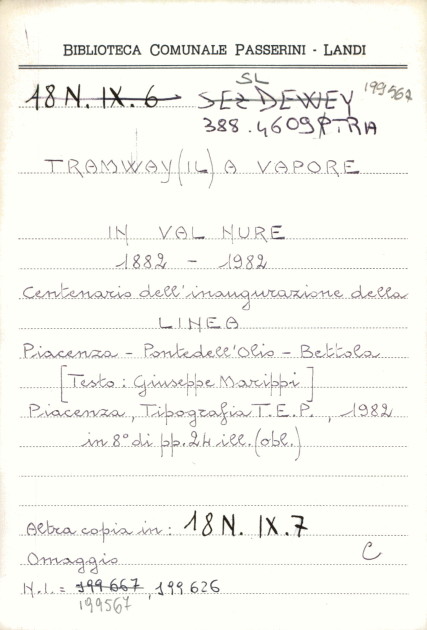 BIBLIOTECA COMUNALE PASSERINI - LANDI
SL
18 N. IX. 6 SEZ DEWEY 199567
388.4609 P.TRIA
TRAMWAY (IL) A VAPORE
IN VAL NURE
1882 - 1982
Centenario dell'inaugurazione della
LINEA
Piacenza - Pontedell'Olio - Bettola
[Testo: Giuseppe Marippi]
Piacenza, Tipografia T.E.P., 1982
in 8° di pp. 24 ill. (obl.)
Altra copia in: 18 N. IX. 7
Omaggio C
N.I. = 199667, 199626
199567